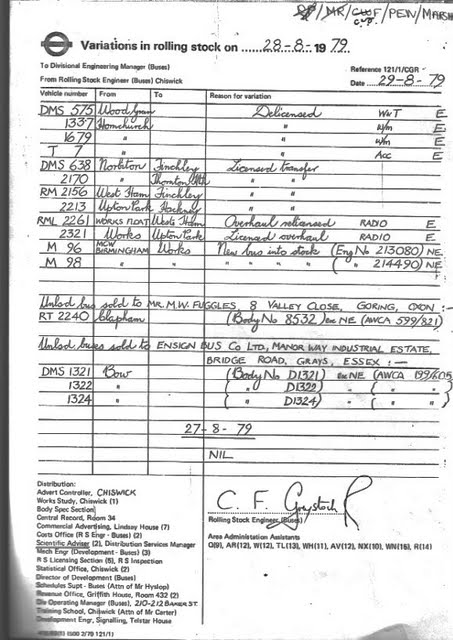 /MR/ /PEN/MARSH
Variations in rolling stock on 28-8-1979
To Divisional Engineering Manager (Buses)
Reference 121/1/CGR
From Rolling Stock Engineer (Buses) Chiswick
Date 29-8-79
Vehicle number From To Reason for variation
DMS 575 Wood Green Delicensed W&T E
1337 Hornchurch " W/M E
1679 " " W/M E
T 7 " " Acc E
DMS 638 Norbiton Finchley Licensed transfer
2170 " Thornton Hth "
RM 2156 West Ham Finchley "
2213 Upton Park Hackney "
RML 2261 WORKS FLOAT West Ham Overhaul relicensed RADIO E
2321 Works Upton Park Licensed overhaul RADIO E
M 96 MCW BIRMINGHAM Works New bus into stock (Eng No 213080) NE
M 98 " " " " " " ( " 214490) NE
Unlsd bus sold to MR. M.W. FUGGLES, 8 VALLEY CLOSE, GORING, OXON :-
RT 2240 Clapham (Body No 8532) ex NE (AWCA 599/821)
Unlsd buses sold to ENSIGN BUS CO LTD, MANOR WAY INDUSTRIAL ESTATE,
BRIDGE ROAD, GRAYS, ESSEX :-
DMS 1321 Bow (Body No D1321) ex NE (AWCA 199/605)
1322 " ( " D1322) " ( " " )
1324 " ( " D1324) " ( " " )
27-8-79
NIL
Distribution:
Advert Controller, CHISWICK
Works Study, Chiswick (1)
Body Spec Section
Central Record, Room 34
Commercial Advertising, Lindsay House (7)
Costs Office (R S Engr - Buses) (2)
Scientific Adviser (2), Distribution Services Manager
Mech Engr (Development - Buses) (3)
R S Licensing Section (5), R S Inspection
Statistical Office, Chiswick (2)
Director of Development (Buses)
Schedules Supt - Buses (Attn of Mr Hyslop)
Revenue Office, Griffith House, Room 432 (2)
Operating Manager (Buses), 210-212 BAKER ST.
Training School, Chiswick (Attn of Mr Carter)
Development Engr, Signalling, Telstar House
C. F.
Rolling Stock Engineer (Buses)
Area Administration Assistants
Q(9), AR(12), W(12), TL(13), WH(11), AV(12), NX(10), WN(15), R(14)
(500) 2/79 121/1)